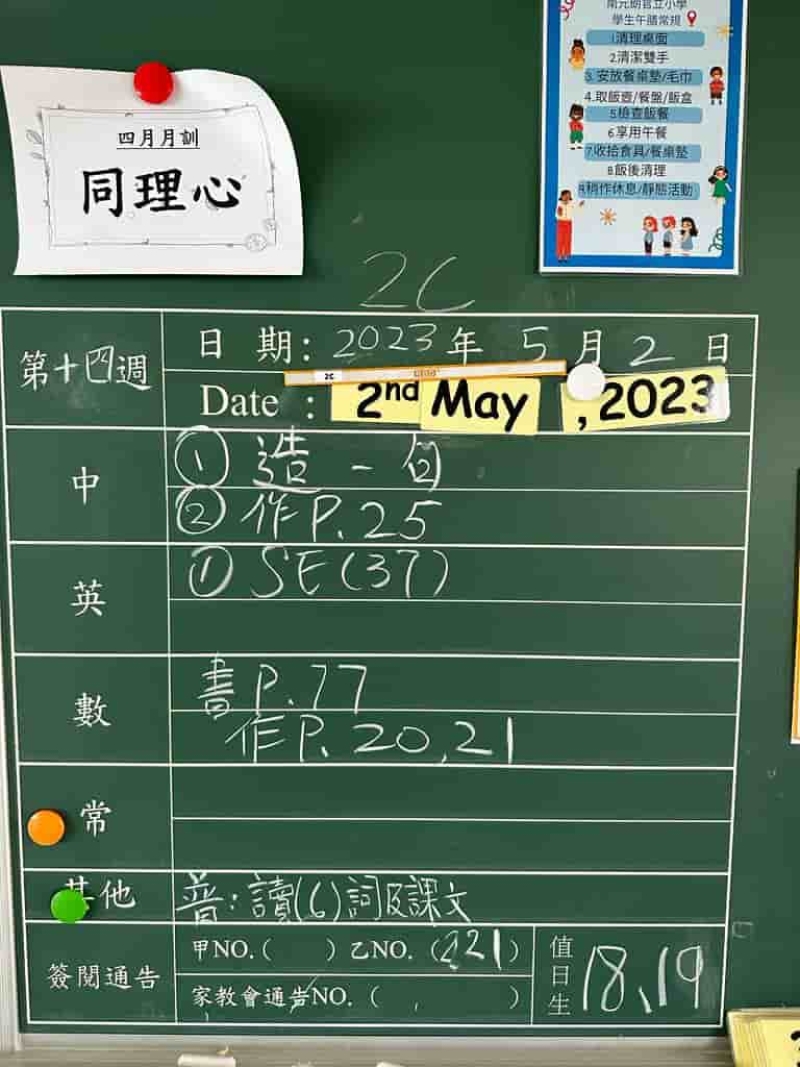 四月月訓
同理心
南元朗官立小學
學生午膳常規
1清理桌面
2.清潔雙手
3.安放餐桌墊/毛巾
4.取飯壺/餐盤/飯盒
5檢查飯餐
6享用午餐
7.收拾食具/餐桌墊
8.飯後清理
9.稍作休息/靜態活動
2C
第十四週
日 期: 2023年 5月 2 日
2C
Date : 2nd May , 2023
中
① 造 - 句
② 作P.25
英
① SE(37)
數
書P.77
作P.20,21
常
其他
普:讀(6)詞及課文
簽閱通告
甲NO.( ) 乙NO.(221)
家教會通告NO.( , )
值日生
18、19